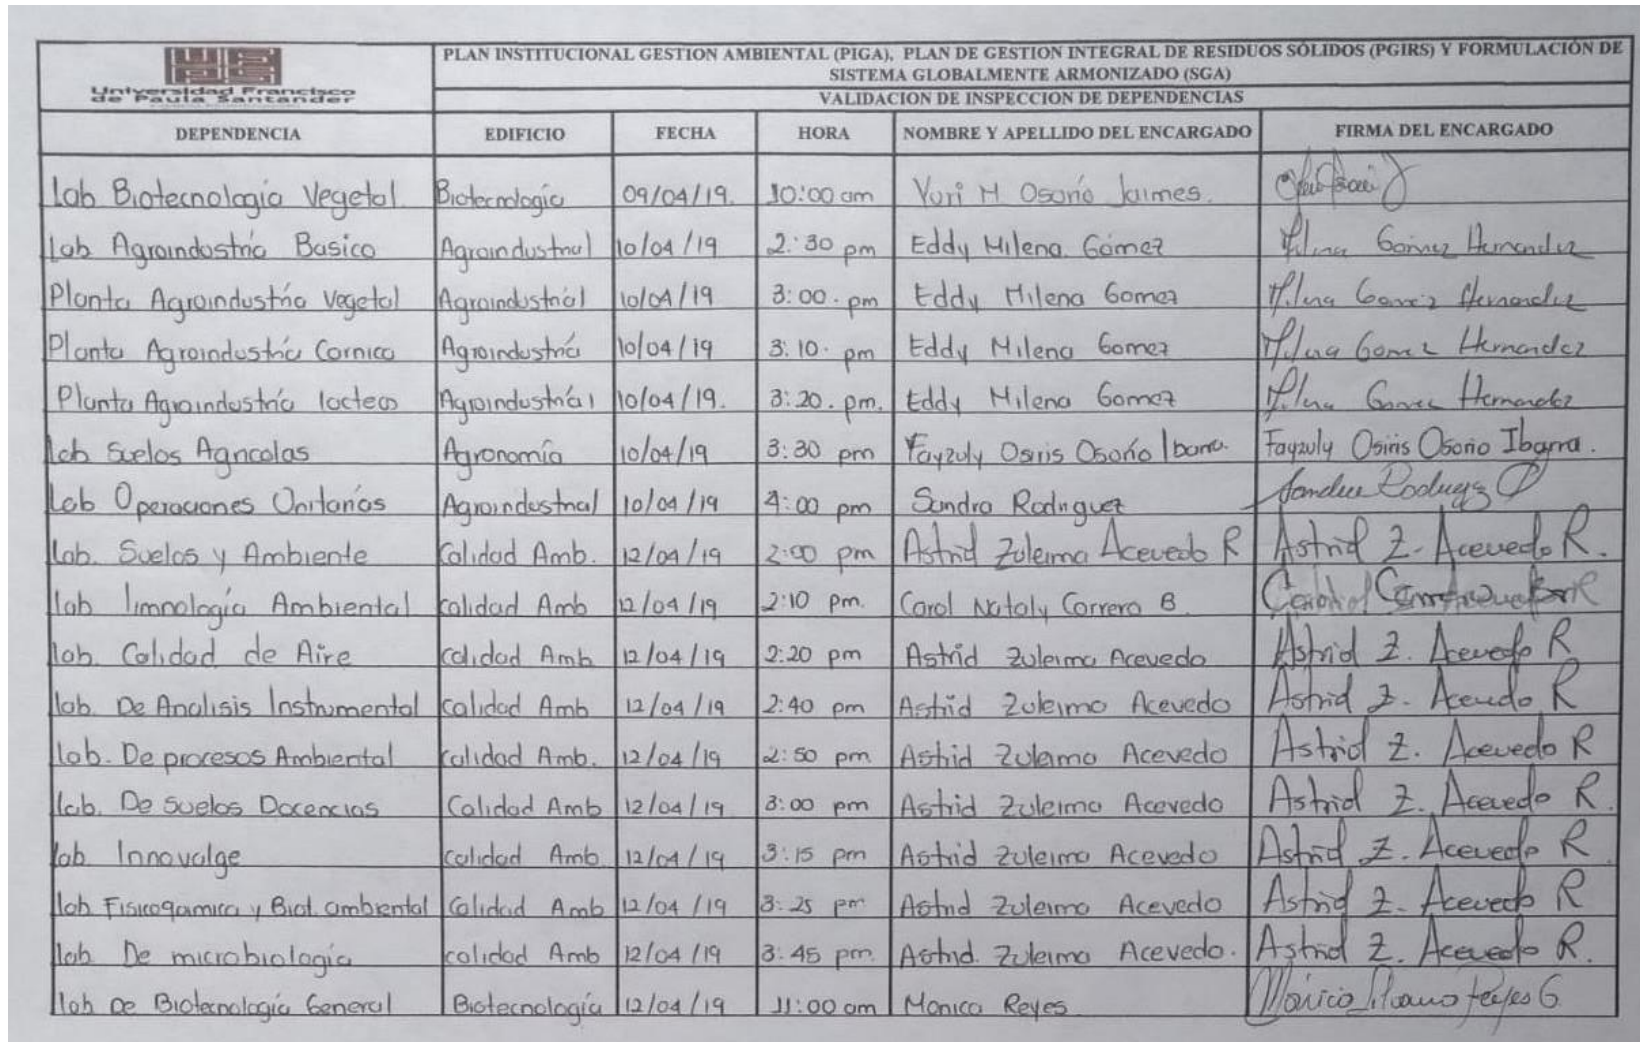 Universidad Francisco
de Paula Santander
PLAN INSTITUCIONAL GESTION AMBIENTAL (PIGA), PLAN DE GESTION INTEGRAL DE RESIDUOS SÓLIDOS (PGIRS) Y FORMULACIÓN DE
SISTEMA GLOBALMENTE ARMONIZADO (SGA)
VALIDACION DE INSPECCION DE DEPENDENCIAS
DEPENDENCIA EDIFICIO FECHA HORA NOMBRE Y APELLIDO DEL ENCARGADO FIRMA DEL ENCARGADO
Lab Biotecnologia Vegetal Biotecnología 09/04/19. 10:00 am Yuri M Osorio Jaimes.
Lab Agroindustria Basico Agroindustrial 10/04/19 2:30 pm Eddy Milena Gómez Milena Gómez Hernandez
Planta Agroindustria Vegetal Agroindustrial 10/04/19 3:00. pm Eddy Milena Gomez Milena Gomez Hernandez
Planta Agroindustria Carnica Agroindustria 10/04/19 3:10. pm Eddy Milena Gomez Milena Gomez Hernandez
Planta Agroindustria lacteos Agroindustrial 10/04/19. 3:20. pm. Eddy Milena Gomez Milena Gomez Hernandez
Lab Suelos Agricolas Agronomía 10/04/19 3:30 pm Fayzuly Osiris Osorio Ibarra. Fayzuly Osiris Osorio Ibarra.
Lab Operaciones Unitarias Agroindustrial 10/04/19 4:00 pm Sandra Rodriguez Sandra Rodriguez
Lab. Suelos y Ambiente Calidad Amb. 12/04/19 2:00 pm Astrid Zuleima Acevedo R Astrid Z. Acevedo R.
lab limnología Ambiental calidad Amb 12/04/19 2:10 pm. Carol Nataly Correro B
lab. Calidad de Aire calidad Amb 12/04/19 2:20 pm Astrid Zuleima Acevedo Astrid Z. Acevedo R
lab. De Analisis Instrumental calidad Amb 12/04/19 2:40 pm Astrid Zuleima Acevedo Astrid Z. Acevedo R
lab. De procesos Ambiental calidad Amb. 12/04/19 2:50 pm Astrid Zuleima Acevedo Astrid Z. Acevedo R
lab. De suelos Docencias Calidad Amb 12/04/19 3:00 pm Astrid Zuleima Acevedo Astrid Z. Acevedo R.
lab. Innovalge calidad Amb. 12/04/19 3:15 pm Astrid Zuleima Acevedo Astrid Z. Acevedo R
lab Fisicoquimica y Biot. ambiental Calidad Amb 12/04/19 3:25 pm Astrid Zuleima Acevedo Astrid Z. Acevedo R
lab. De microbiologia calidad Amb 12/04/19 3:45 pm. Astrid. Zuleima Acevedo. Astrid Z. Acevedo R.
lab De Biotecnología General Biotecnología 12/04/19 11:00 am Monica Reyes Reyes G.